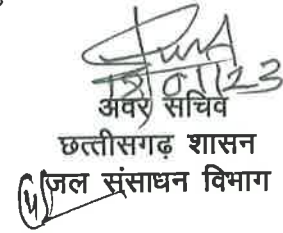 18/01/23
अवर सचिव
छत्तीसगढ़ शासन
जल संसाधन विभाग